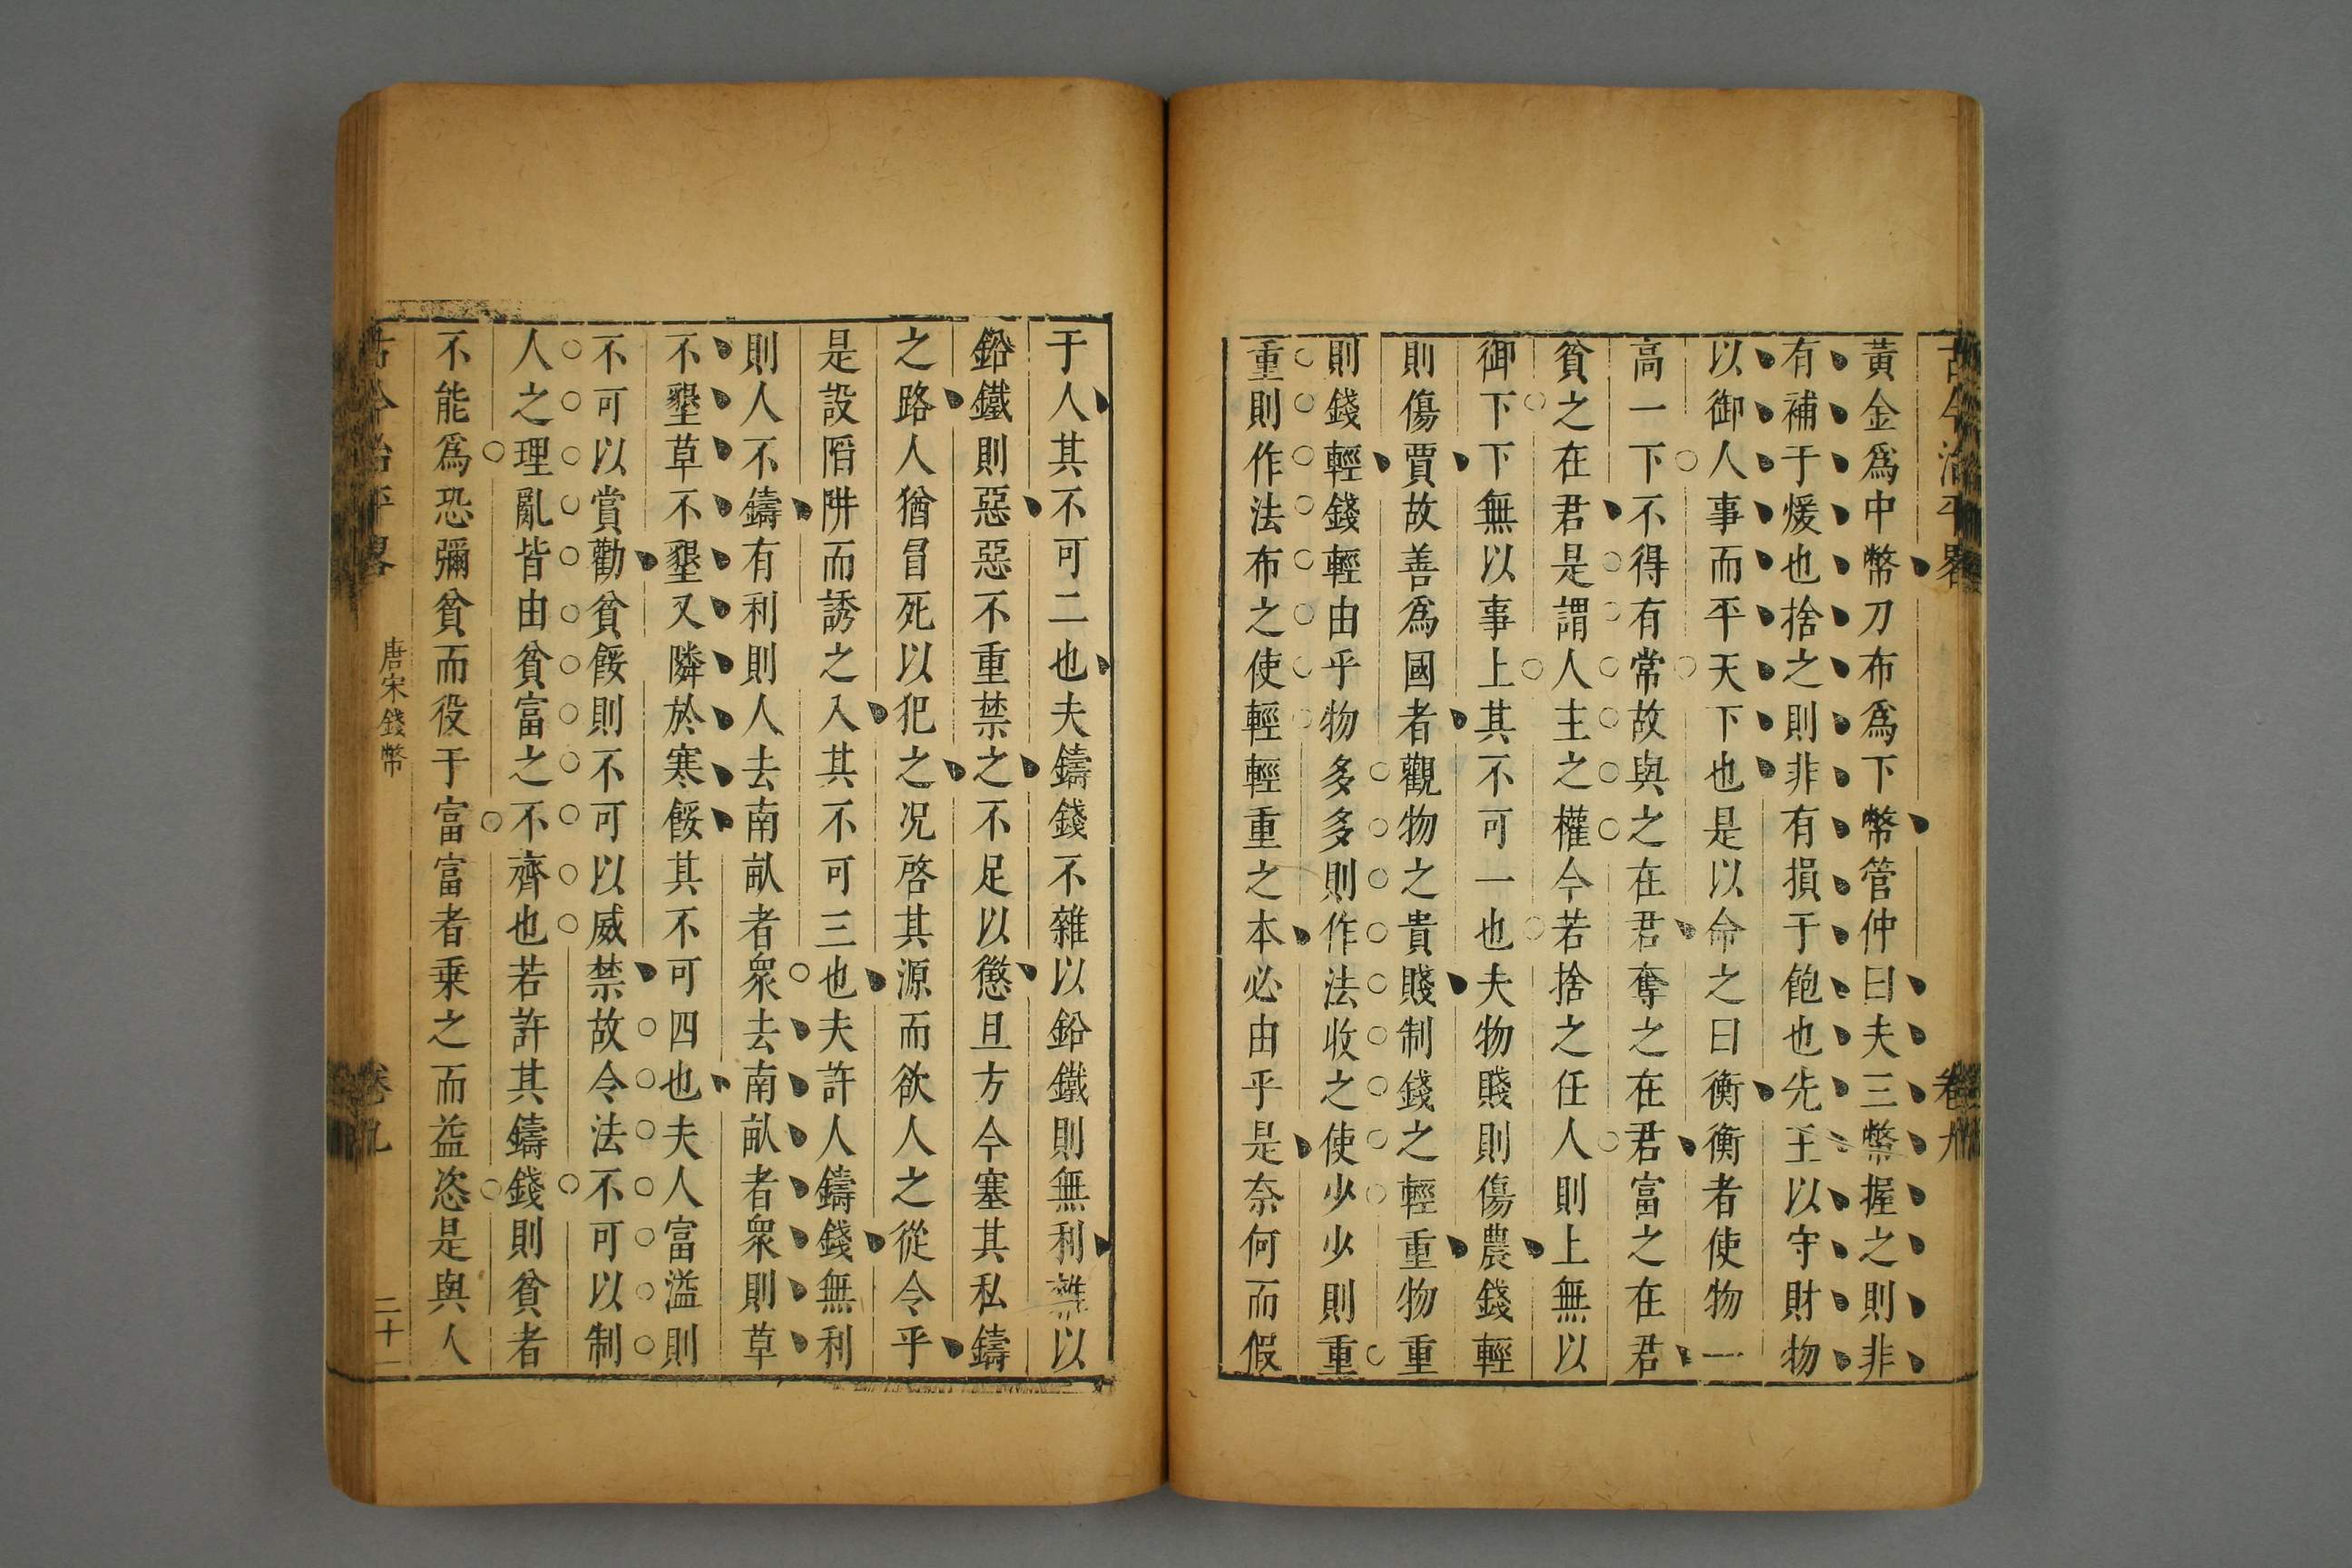 古今治平畧
卷九
黃金爲中幣刀布爲下幣管仲曰夫三幣握之則非
有補于煖也捨之則非有損于飽也先王以守財物
以御人事而平天下也是以命之曰衡衡者使物一
高一下不得有常故與之在君奪之在君富之在君
貧之在君是謂人主之權今若捨之任人則上無以
御下下無以事上其不可一也夫物賤則傷農錢輕
則傷賈故善爲國者觀物之貴賤制錢之輕重物重
則錢輕錢輕由乎物多多則作法收之使少少則重
重則作法布之使輕輕重之本必由乎是奈何而假
于人其不可二也夫鑄錢不雜以鉛鐵則無利雜以
鉛鐵則惡惡不重禁之不足以懲且方今塞其私鑄
之路人猶冒死以犯之况啓其源而欲人之從令乎
是設陷阱而誘之入其不可三也夫許人鑄錢無利
則人不鑄有利則人去南畝者衆去南畝者衆則草
不墾草不墾又隣於寒餒其不可四也夫人富溢則
不可以賞勸貧餒則不可以威禁故令法不可以制
人之理亂皆由貧富之不齊也若許其鑄錢則貧者
不能爲恐彌貧而役于富富者乗之而益恣是與人
古今治平畧
唐宋錢幣
卷九
二十一